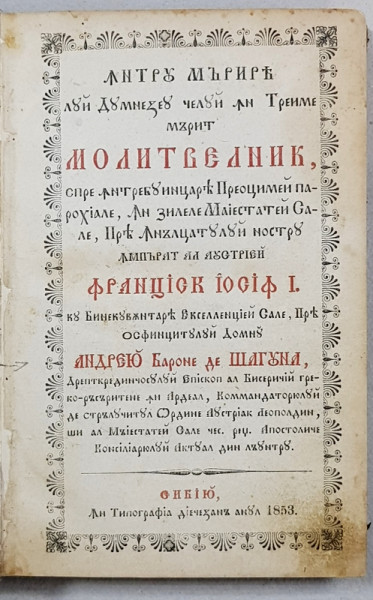 ꙞНТРꙊ МЪРИРѢ
ЛꙊЙ ДꙊМНЕЗЕꙊ ЧЕЛꙊЙ ꙞН ТРЕИМЕ
МЪРИТ
МОЛИТВЕЛНИК,
СПРЕ ꙞНТРЕБꙊИНЦАРѢ ПРЕОЦИМЕЙ ПА-
РОХІАЛЕ, ꙞН ЗИЛЕЛЕ МАІЕСТАТЕЙ СА-
ЛЕ, ПРѢ ꙞНЪЛЦАТꙊЛꙊЙ НОСТРꙊ
ꙞМПЪРАТ АЛ АꙊСТРІЕЙ
ФРАНЦІСК ІОСІФ І.
КꙊ БИНЕКꙊВѪНТАРѢ ЕКСЕЛЛЕНЦІЕЙ САЛЕ, ПРѢ
ОСФИНЦИТꙊЛꙊЙ ДОМНꙊ
АНДРЕІꙊ БАРОНЕ ДЕ ШАГꙊНА,
ДРЕПТКРЕДИНЧОСꙊЛꙊЙ ЕПІСКОП АЛ БИСЕРИЧІЙ ГРЕ-
КО-РЪСЪРИТЕНЕ ꙞН АРДЕАЛ, КОММАНДАТОРЮЛꙊЙ
ДЕ СТРЪЛꙊЧИТꙊЛ ОРДИНЕ АꙊСТРІАК ЛЕОПОЛДИН,
ШИ АЛ МЪІЕСТАТЕЙ САЛЕ ЧЕС. РЕЏ. АПОСТОЛИЧЕ
КОНСІЛІАРЮЛꙊЙ АКТꙊАЛ ДИН ЛЪꙊНТРꙊ.
СИБІЮ,
ꙞН ТИПОГРАФІА ДІЕЧЕЗАНЪ АНꙊЛ 1853.